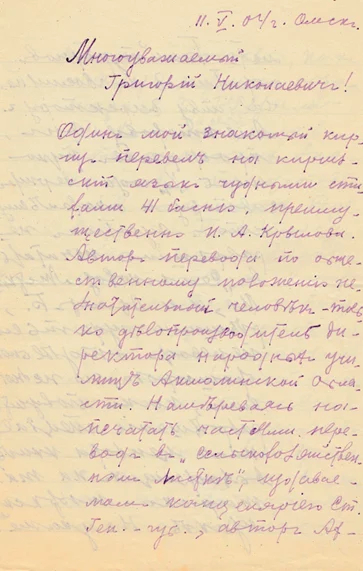 11. V. 04 г. Омскъ.
Многоуважаемый
Григорій Николаевичъ!
Одинъ мой знакомый кир-
гиз перевелъ на киргиз-
скій языкъ чудными сти-
хами 41 басню, преиму-
щественно И. А. Крылова.
Авторъ перевода по обще-
ственному положенію не-
значительный человѣкъ – толь-
ко дѣлопроизводитель ди-
ректора народныхъ учи-
лищъ Акмолинской обла-
сти. Намѣреваясь на-
печатать частями пере-
водъ въ „сельскохозяйствен-
номъ листкѣ" издавае-
момъ канцеляріею Ст.
Ген.-губ., авторъ